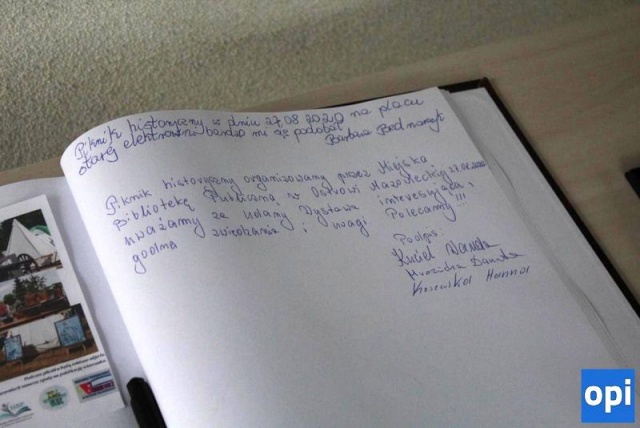 Piknik historyczny w dniu 27.08.2020 na placu
starej elektrowni bardzo mi się podobał
Barbara Bednarczyk
Piknik historyczny organizowany przez Miejską
Bibliotekę Publiczną w Ostrowi Mazowieckiej 27.08.2020
uważamy za udany Wystawa interesująca,
godna zwiedzania i uwagi Polecamy!!!
Podpis:
Kuciel Danuta
Danuta
Hanna
opi